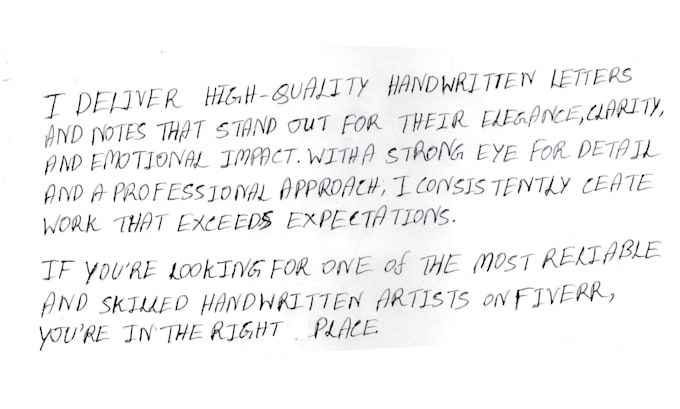 I DELIVER HIGH-QUALITY HANDWRITTEN LETTERS
AND NOTES THAT STAND OUT FOR THEIR ELEGANCE, CLARITY,
AND EMOTIONAL IMPACT. WITH A STRONG EYE FOR DETAIL
AND A PROFESSIONAL APPROACH, I CONSISTENTLY CEATE
WORK THAT EXCEEDS EXPECTATIONS.
IF YOU'RE LOOKING FOR ONE OF THE MOST RELIABLE
AND SKILLED HANDWRITTEN ARTISTS ON FIVERR,
YOU'RE IN THE RIGHT PLACE.